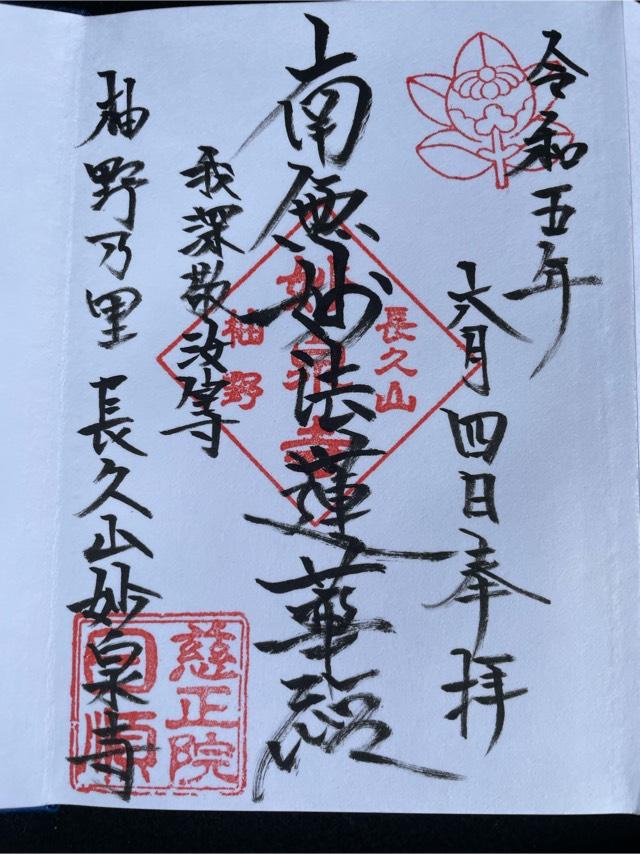 令和五年
六月四日奉拝
南無妙法蓮華経
我深敬汝等
柚野乃里 長久山妙泉寺
長久山
妙泉寺
柚野
慈正院
日順